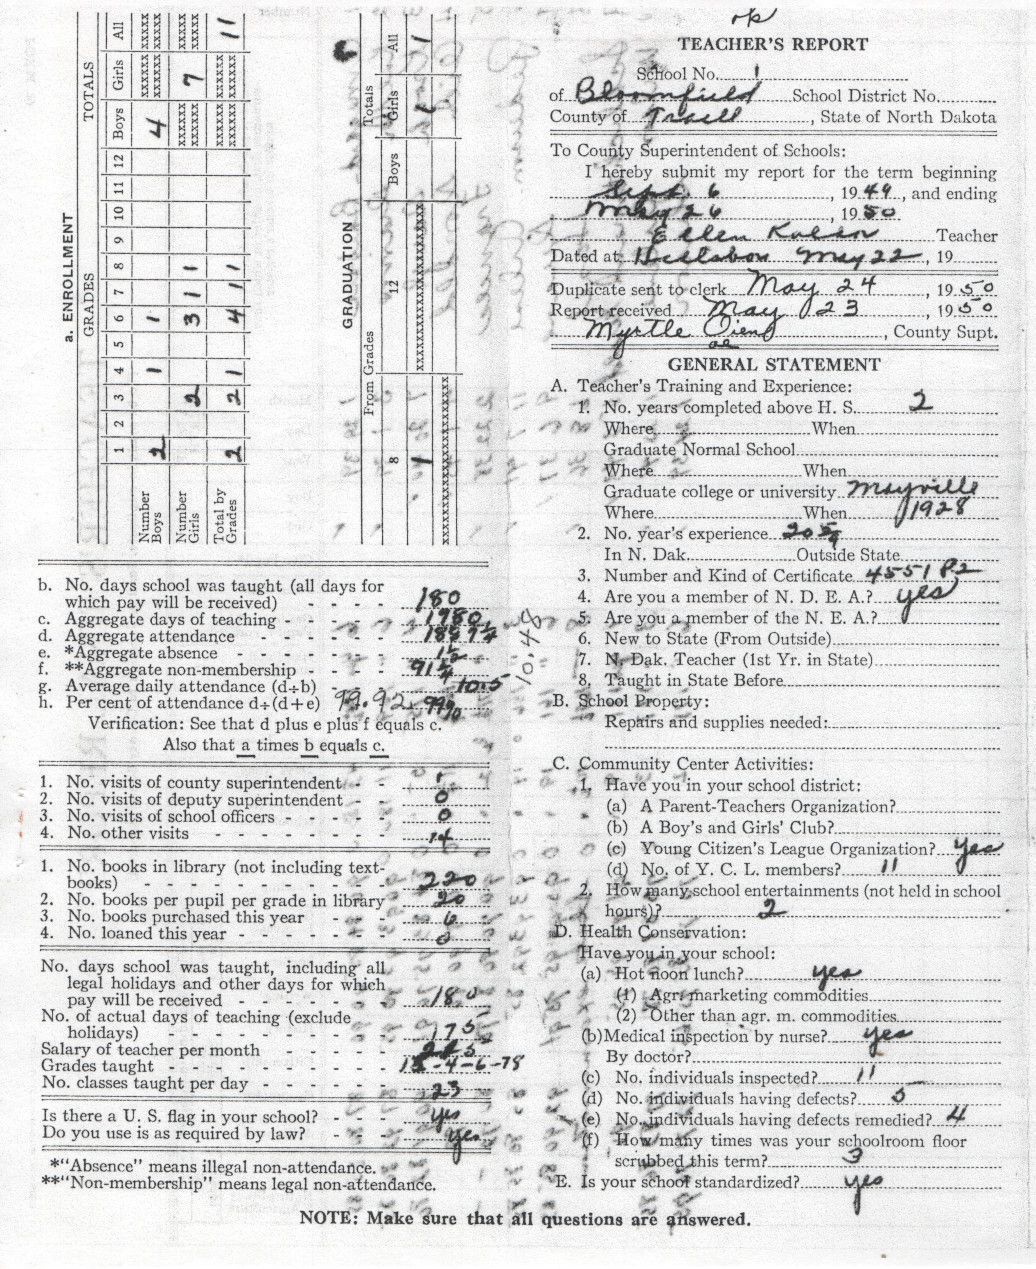 a. ENROLLMENT
GRADES TOTALS
1 2 3 4 5 6 7 8 9 10 11 12 Boys Girls All
Number Boys 2 1 1 4 xxxxx xxxxx
Number Girls 2 3 1 1 xxxxxx 7 xxxxx
Total by Grades 2 2 1 4 1 1 xxxxxx xxxxx 11
GRADUATION
From Grades Totals
8 12 Boys Girls All
1 xxxxxxxxxxxxxxxxxxxx 1 1
xxxxxxxxxxxxxxxxxxxx
b. No. days school was taught (all days for
which pay will be received) - - - - 180
c. Aggregate days of teaching - - - - 1980
d. Aggregate attendance - - - - -
e. *Aggregate absence - - - - - 1 1/2
f. **Aggregate non-membership - - - -
g. Average daily attendance (d÷b) 10.5
h. Per cent of attendance d÷(d+e) 99.92
Verification: See that d plus e plus f equals c.
Also that a times b equals c.
1. No. visits of county superintendent - - 1
2. No. visits of deputy superintendent - - 0
3. No. visits of school officers - - - - 0
4. No. other visits - - - - - - 14
1. No. books in library (not including text-
books) - - - - - - - - 220
2. No. books per pupil per grade in library 20
3. No. books purchased this year - - - 6
4. No. loaned this year - - - - - - 0
No. days school was taught, including all
legal holidays and other days for which
pay will be received - - - - - 180
No. of actual days of teaching (exclude
holidays) - - - - - - - 175
Salary of teacher per month - - - - -
Grades taught - - - - - - - -
No. classes taught per day - - - - - 23
Is there a U. S. flag in your school? - - yes
Do you use is as required by law? - - yes
*"Absence" means illegal non-attendance.
**"Non-membership" means legal non-attendance.
10.48
ok
TEACHER'S REPORT
School No. 1
of Bloomfield School District No.
County of Traill, State of North Dakota
To County Superintendent of Schools:
I hereby submit my report for the term beginning
Sept 6, 1949, and ending
May 26, 1950
Ellen Teacher
Dated at Hillsboro May 22, 19
Duplicate sent to clerk May 24, 1950
Report received May 23, 1950
Myrtle, County Supt.
GENERAL STATEMENT
A. Teacher's Training and Experience:
1. No. years completed above H. S. 2
Where When
Graduate Normal School
Where When
Graduate college or university Mayville
Where When 1928
2. No. year's experience
In N. Dak. Outside State
3. Number and Kind of Certificate 4551
4. Are you a member of N. D. E. A.? yes
5. Are you a member of the N. E. A.?
6. New to State (From Outside)
7. N. Dak. Teacher (1st Yr. in State)
8. Taught in State Before
B. School Property:
Repairs and supplies needed:
C. Community Center Activities:
1. Have you in your school district:
(a) A Parent-Teachers Organization?
(b) A Boy's and Girls' Club?
(c) Young Citizen's League Organization? yes
(d) No. of Y. C. L. members? 11
2. How many school entertainments (not held in school
hours)? 2
D. Health Conservation:
Have you in your school:
(a) Hot noon lunch? yes
(1) Agr. marketing commodities
(2) Other than agr. m. commodities
(b) Medical inspection by nurse? yes
By doctor?
(c) No. individuals inspected? 11
(d) No. individuals having defects? 5
(e) No. individuals having defects remedied? 4
(f) How many times was your schoolroom floor
scrubbed this term? 3
E. Is your school standardized? yes
NOTE: Make sure that all questions are answered.